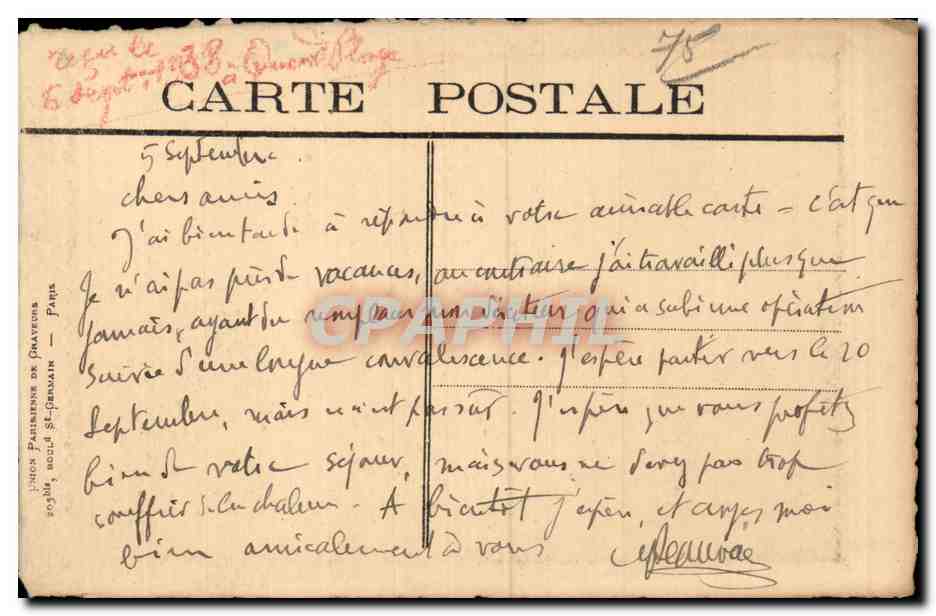 reçu le
6 Sept. 1938 à Quend Plage
75
CARTE POSTALE
5 Septembre.
chers amis
J'ai bien tardé à répondre à votre aimable carte - c'est que
Je n'ai pas pris de vacances, au contraire j'ai travaillé plus que
jamais, ayant du remplacer mon qui a subi une opération
suivie d'une longue convalescence. J'espère partir vers le 20
Septembre, mais n'en est pas sûr. J'espère que vous profitez
bien de votre séjour, mais vous ne devez pas trop
souffrir de la chaleur. A bientôt j'espère, et croyez moi
bien amicalement à vous
UNION PARISIENNE DE GRAVEURS
205bis, BOULd St-GERMAIN — PARIS
CPAPHIL